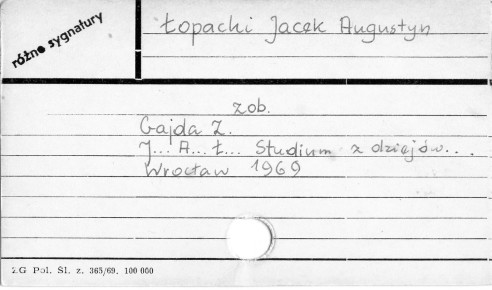 różne sygnatury
Łopacki Jacek Augustyn
zob.
Gajda Z.
J... A... Ł... Studium z dziejów...
Wrocław 1969
Z.G Pol. Sl. z. 365/69. 100 000